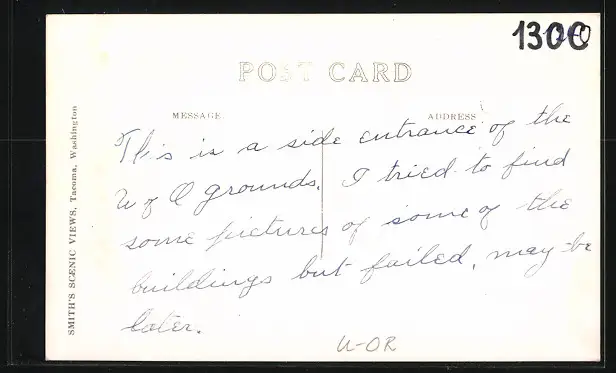 1300
POST CARD
MESSAGE
ADDRESS
SMITH'S SCENIC VIEWS, Tacoma, Washington
This is a side entrance of the
U of O grounds. I tried to find
some pictures of some of the
buildings but failed, may-be
later.
U-OR